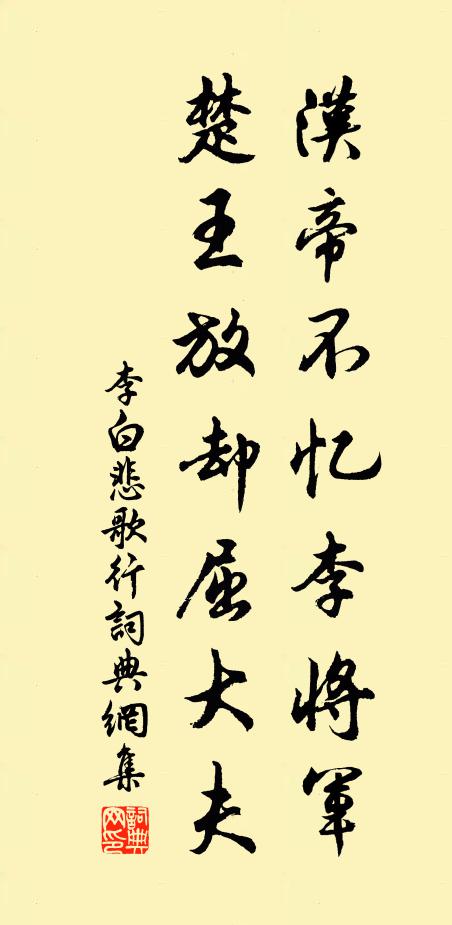 漢帝不忆李将軍
楚王放却屈大夫
李白悲歌行詞典網集
詞典
网印